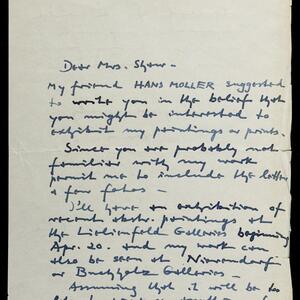 Dear Mrs. Shaw -
My friend HANS MOLLER suggested
to write you in the belief that
you might be interested to
exhibit my paintings or prints.
Since you are probably not
familiar with my work
permit me to include the letter
a few fotos -
I'll have an exhibition of
recent abstr. paintings at
the Lilienfeld Galleries beginning
Apr. 20. and my work can
also be seen at Nierendorf
or Buchholz Galleries -
Assuming that it will be to